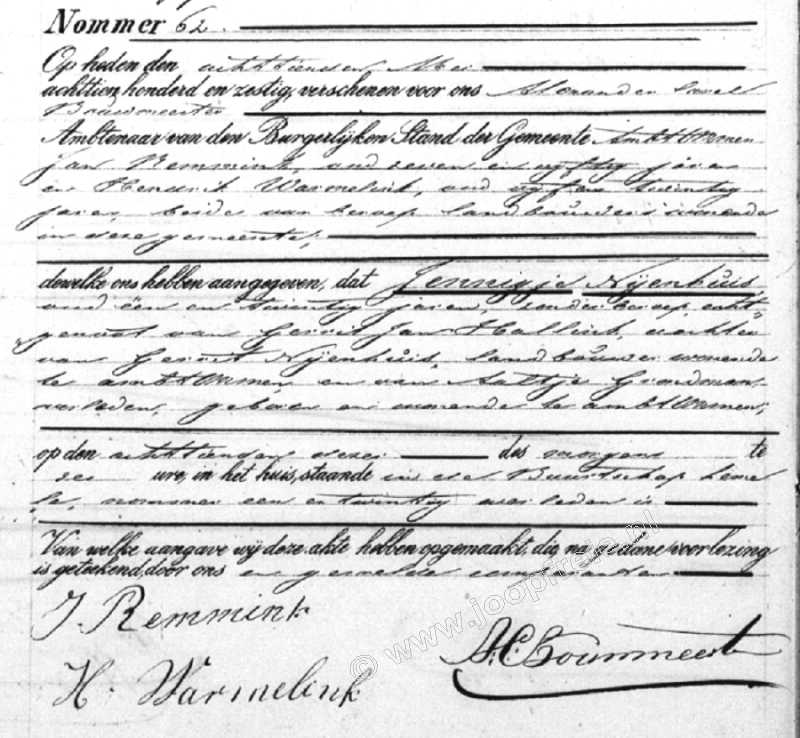 Nommer 62.
Op heden den achttienden Mei
achttien honderd en zestig, verschenen voor ons Alexander Carel
Bouwmeester
Ambtenaar van den Burgerlijken Stand der Gemeente Ambt Ommen
Jan Remmink, oud zeven en vijftig jaren
en Hendrik Warmelink, oud vijf en twintig
jaren, beide van beroep landbouwers wonende
in deze gemeente,
dewelke ons hebben aangegeven, dat Jennigje Nijenhuis
oud één en twintig jaren, zonder beroep, echt-
genoot van Gerrit Jan Hallink, dochter
van Gerrit Nijenhuis, landbouwer wonende
te ambt Ommen, en van Aaltje
overleden, geboren en wonende te ambt Ommen,
op den achttienden dezer des morgens te
zes ure, in het huis, staande in de Buurtschap Leme
le, nommer een en twintig overleden is
Van welke aangave wij deze akte hebben opgemaakt, die, na gedane voorlezing
is geteekend, door ons en gemelde comparanten
J. Remmink
H. Warmelink
A.C. Bouwmeester
© www.joopfreje.nl